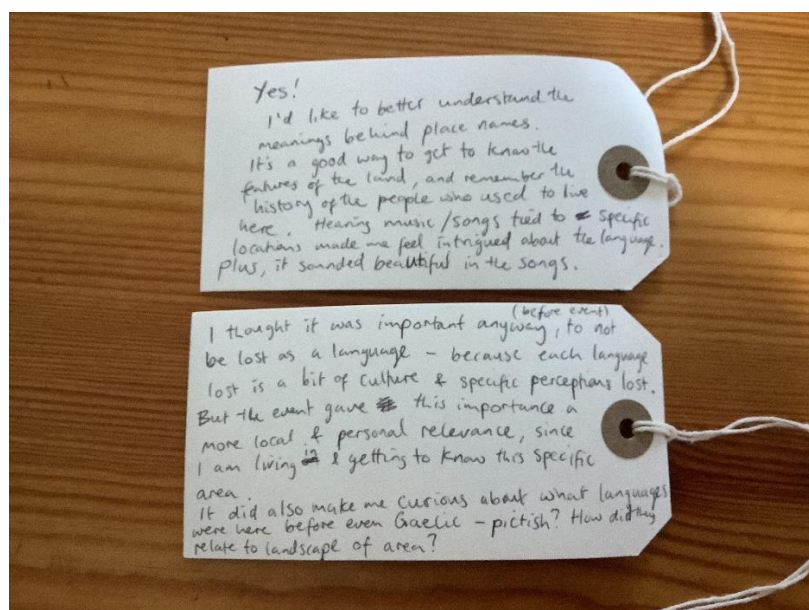 Yes!
I'd like to better understand the
meanings behind place names.
It's a good way to get to know the
features of the land, and remember the
history of the people who used to live
here. Hearing music/songs tied to specific
locations made me feel intrigued about the language.
Plus, it sounded beautiful in the songs.
(before event)
I thought it was important anyway, to not
be lost as a language - because each language
lost is a bit of culture & specific perceptions lost.
But the event gave this importance a
more local & personal relevance, since
I am living & getting to know this specific
area.
It did also make me curious about what languages
were here before even Gaelic - pictish? How did they
relate to landscape of area?